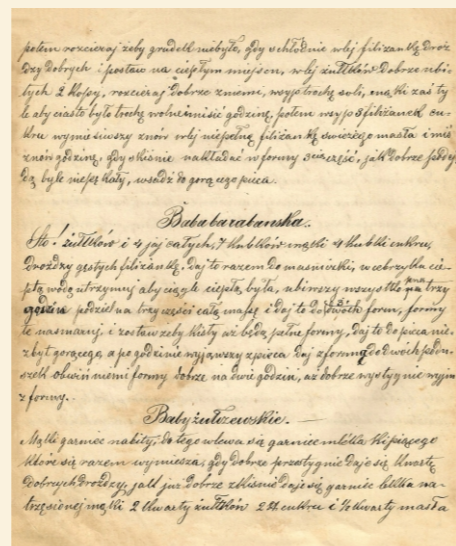 potem rozcieraj żeby grudek niebyło, gdy schłodnie wlej filiżankę droż
dży dobrych i postaw na ciepłym miejscu, wlej żułtków dobrze ubi
tych 2 kopy, rozcieraj dobrze z niemi, wsyp trochę soli, mąki zaś ty
le aby ciasto było trochę wolne misić godzinę, potem wsyp 3 filiżanek cu-
kru wymisiwszy znów wlej niepełną filiżankę świeżego masła i miś
znów godzinę, gdy skiśnie nakładać w formy część, jak dobrze podej
dą byle niepękały, wsadź do gorącego pieca.
Baba barabanska.
Sto! żułtków i 4 jaj całych, 7 kubków mąki 4 kubki cukru,
drożdży gęstych filiżankę, daj to razem do maśniczki, w cebrzyka cie-
płą wodę utrzymuj aby ciągle ciepłą była, ubiwszy wszystko trzy
godzin podziel na trzy części całą masę i daj to do form, formy
te nasmaruj i zostaw żeby kisły aż będą pełne formy, daj to do pieca nie-
zbyt gorącego, a po godzinie wyjąwszy z pieca daj z formą do dwóch podu-
szek obwiń niemi formy dobrze na dwie godzin, aż dobrze wystygnie wyjm
z formy.
Baby żułczewskie.
Mąki garniec nabity, do tego wlewa się garniec mleka kipiącego
które się razem wymiesza, gdy dobrze przestygnie daje się kwartę
dobrych drożdży, jak już dobrze zkiśnie daje się garniec letka na-
trzęsionej mąki 2 kwarty żułtków 2 ℔ cukru i ½ kwarty masła